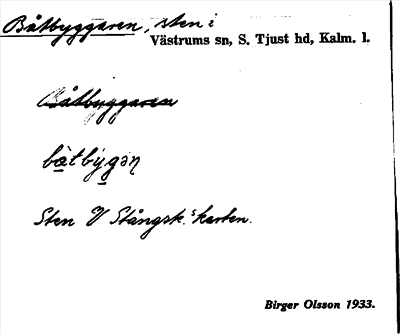 Båtbyggaren, sten i
Västrums sn, S. Tjust hd, Kalm. l.
Båtbyggaren
bàtbýgən
Sten V Stångsk:s karten.
Birger Olsson 1933.